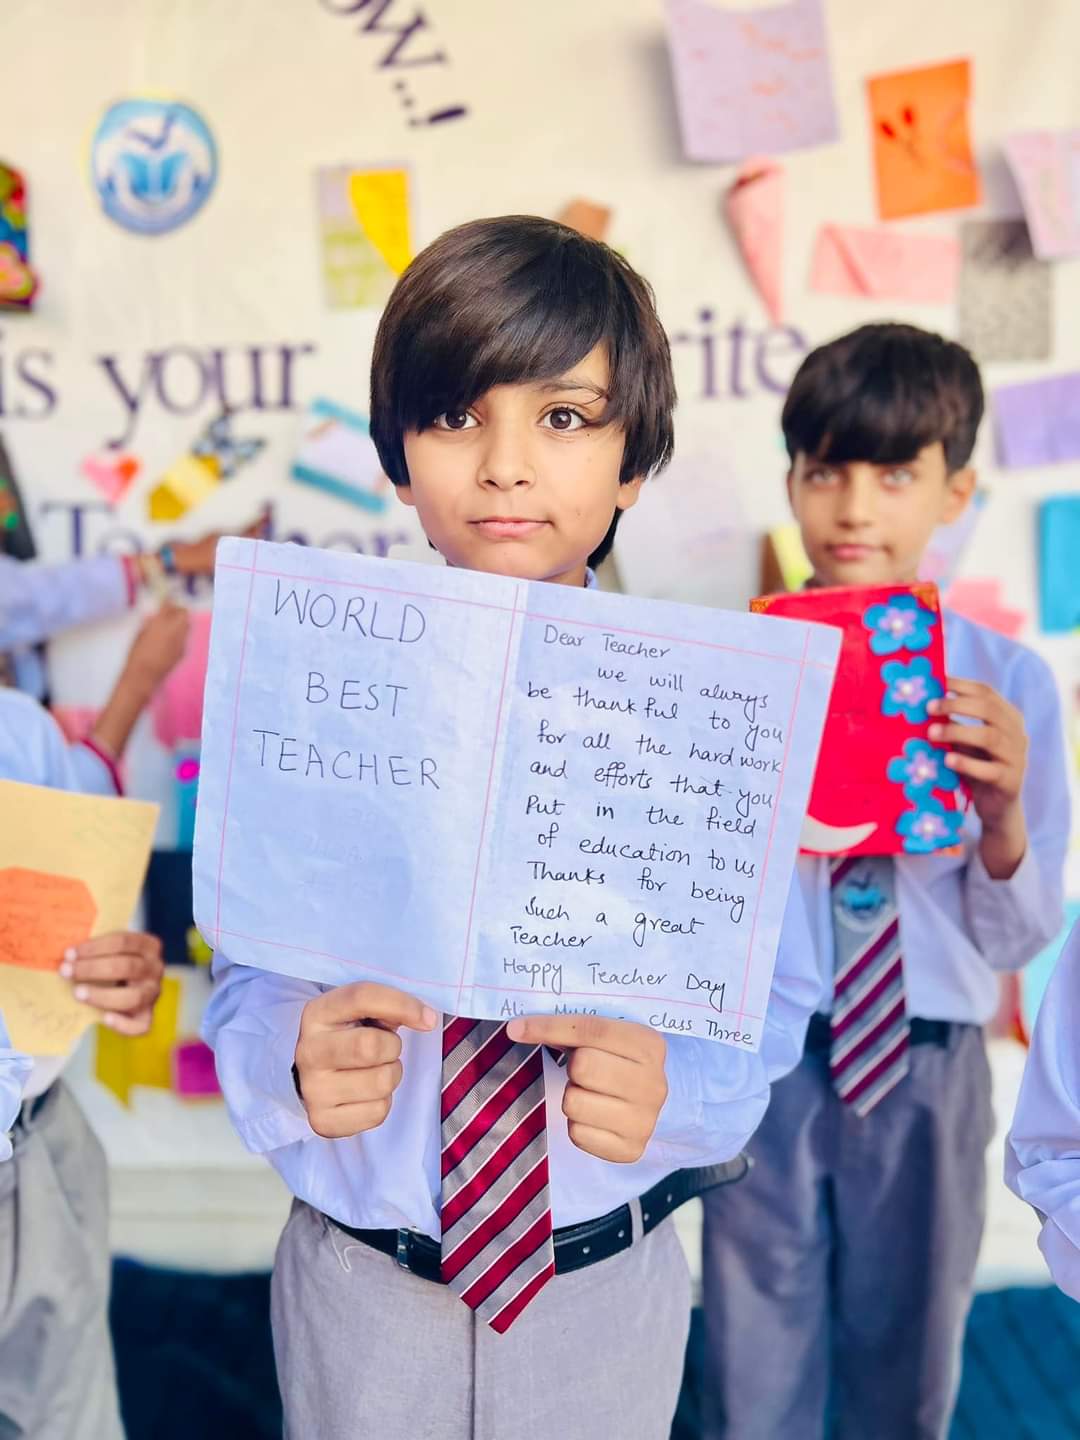 ow...!
is your
rite
Teacher
WORLD
BEST
TEACHER
Dear Teacher
we will always
be thankful to you
for all the hard work
and efforts that you
Put in the field
of education to us
Thanks for being
Such a great
Teacher
Happy Teacher Day
Ali - class Three